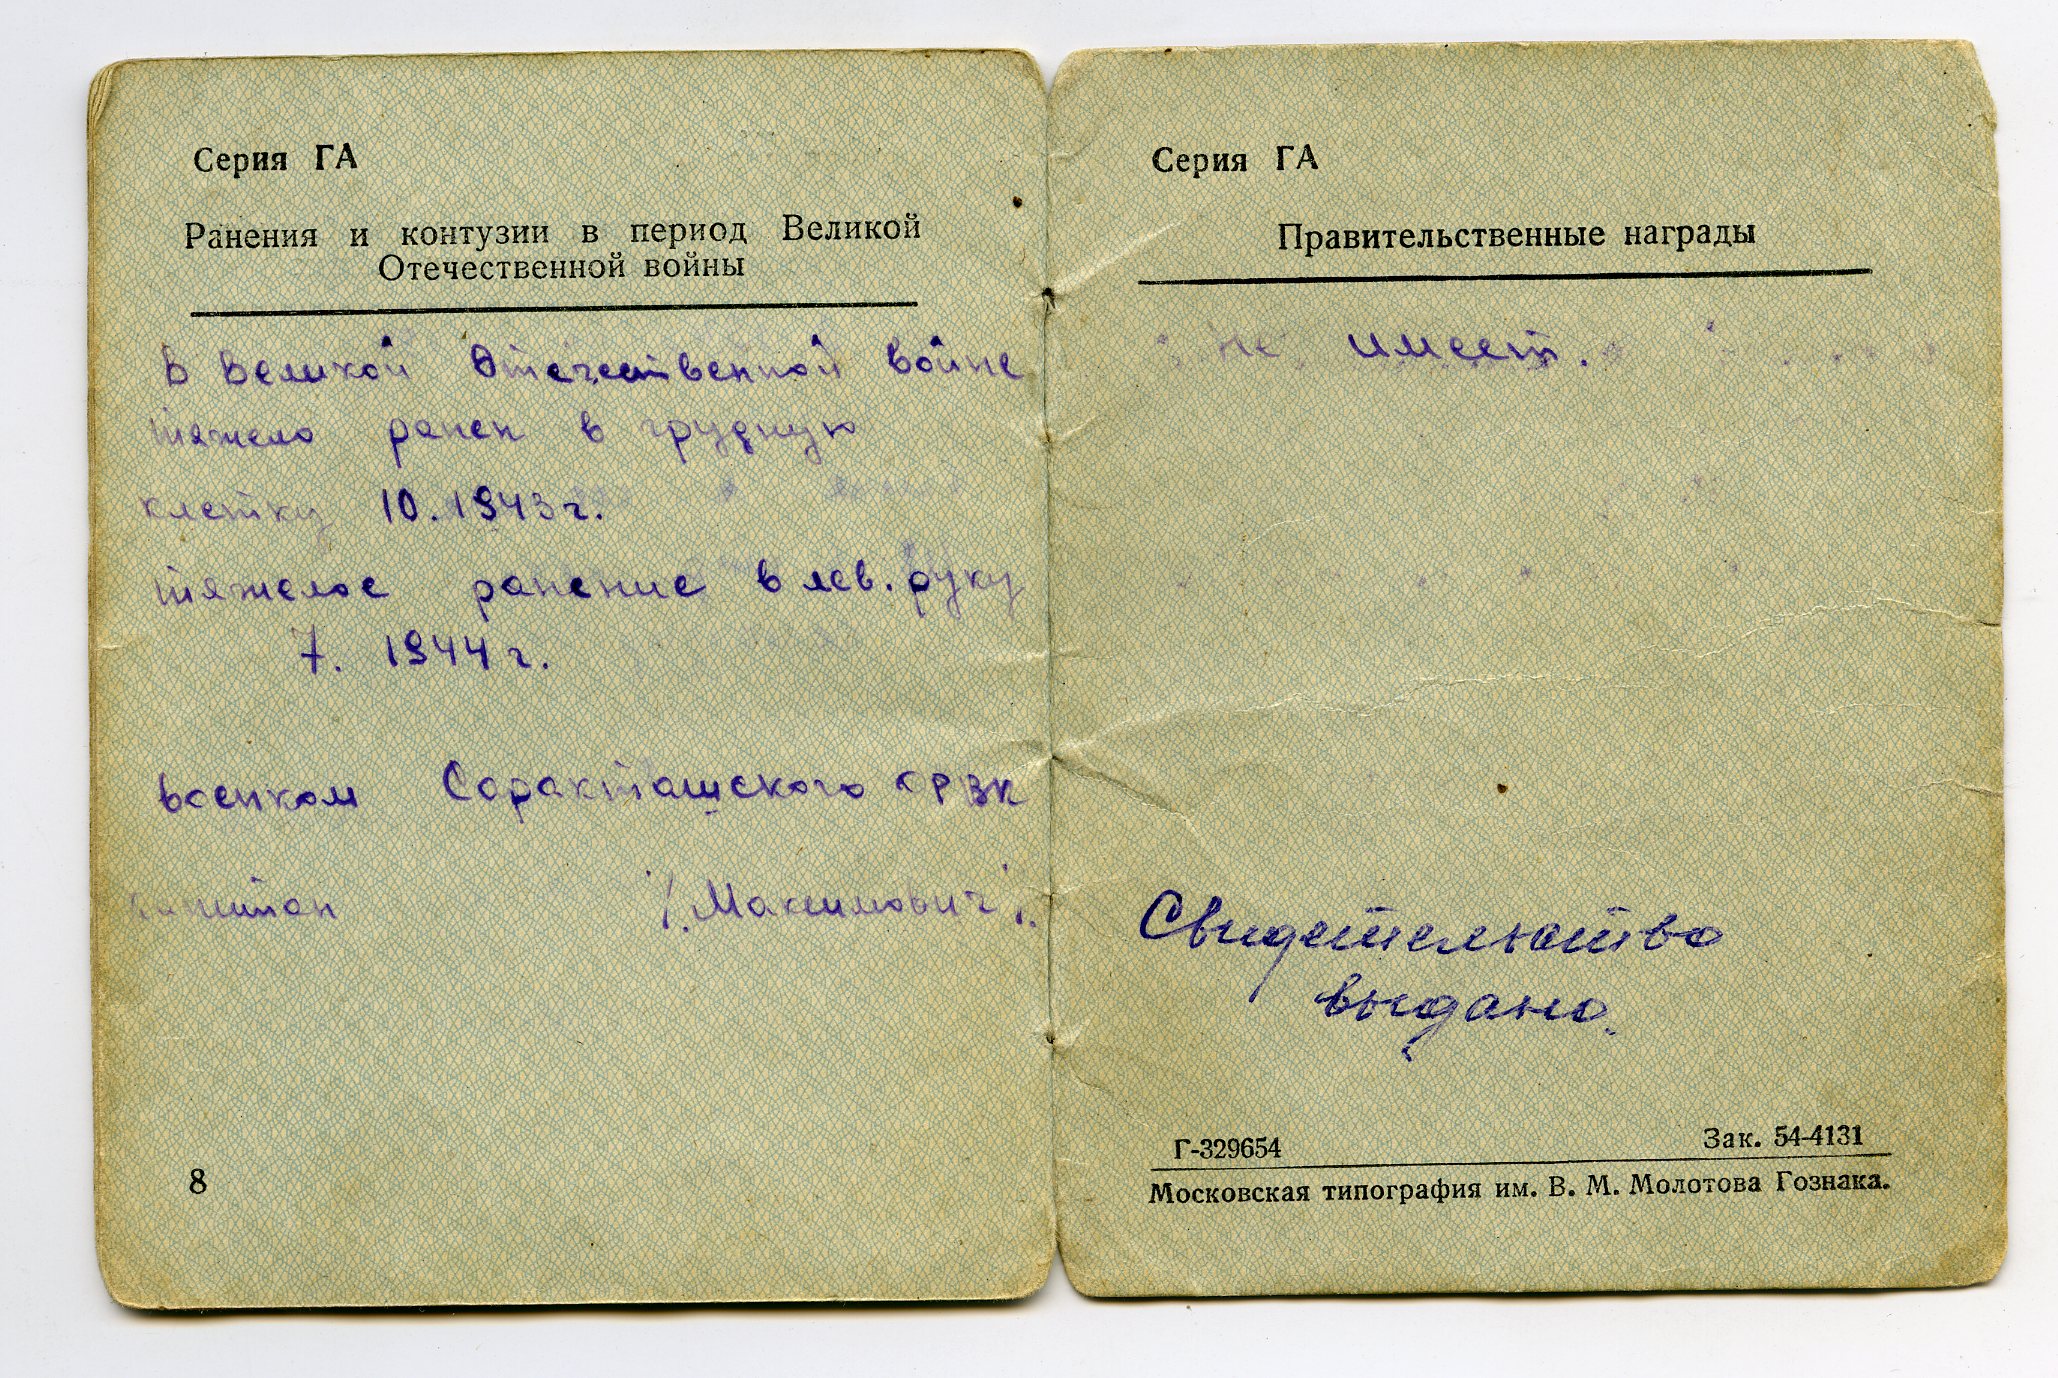 Серия ГА
Ранения и контузии в период Великой
Отечественной войны
В Великой Отечественной войне
тяжело ранен в грудную
клетку 10. 1943 г.
тяжелое ранение в лев. руку
7. 1944 г.
военком Саракташского РВК
капитан /. Максимович /.
8
Серия ГА
Правительственные награды
не имеет.
Свидетельство
выдано.
Г-329654 Зак. 54-4131
Московская типография им. В. М. Молотова Гознака.